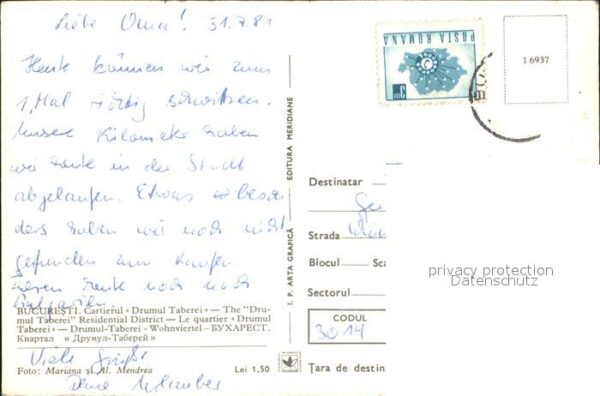 Liebe Oma! 31.7.81
Heute können wir zum
1. Mal richtig schwitzen.
Unsere Kilometer haben
wir heute in der Stadt
abgelaufen. Etwas
haben wir noch nicht
gefunden zum kaufen.
heute noch nach
Bulgarien.
BUCUREȘTI. Cartierul « Drumul Taberei » — The "Dru-
mul Taberei" Residential District — Le quartier « Drumul
Taberei » — Drumul-Taberei - Wohnviertel — БУХАРЕСТ.
Квартал « Друмул-Таберей »
Viele Grüße
Foto: Mariana și Al. Mendrea Lei 1,50
I. P. ARTA GRAFICĂ — EDITURA MERIDIANE
POSTA ROMANA
16937
Destinatar
Strada
Blocul Sca
Sectorul
CODUL
3014
Țara de destin
privacy protection
Datenschutz